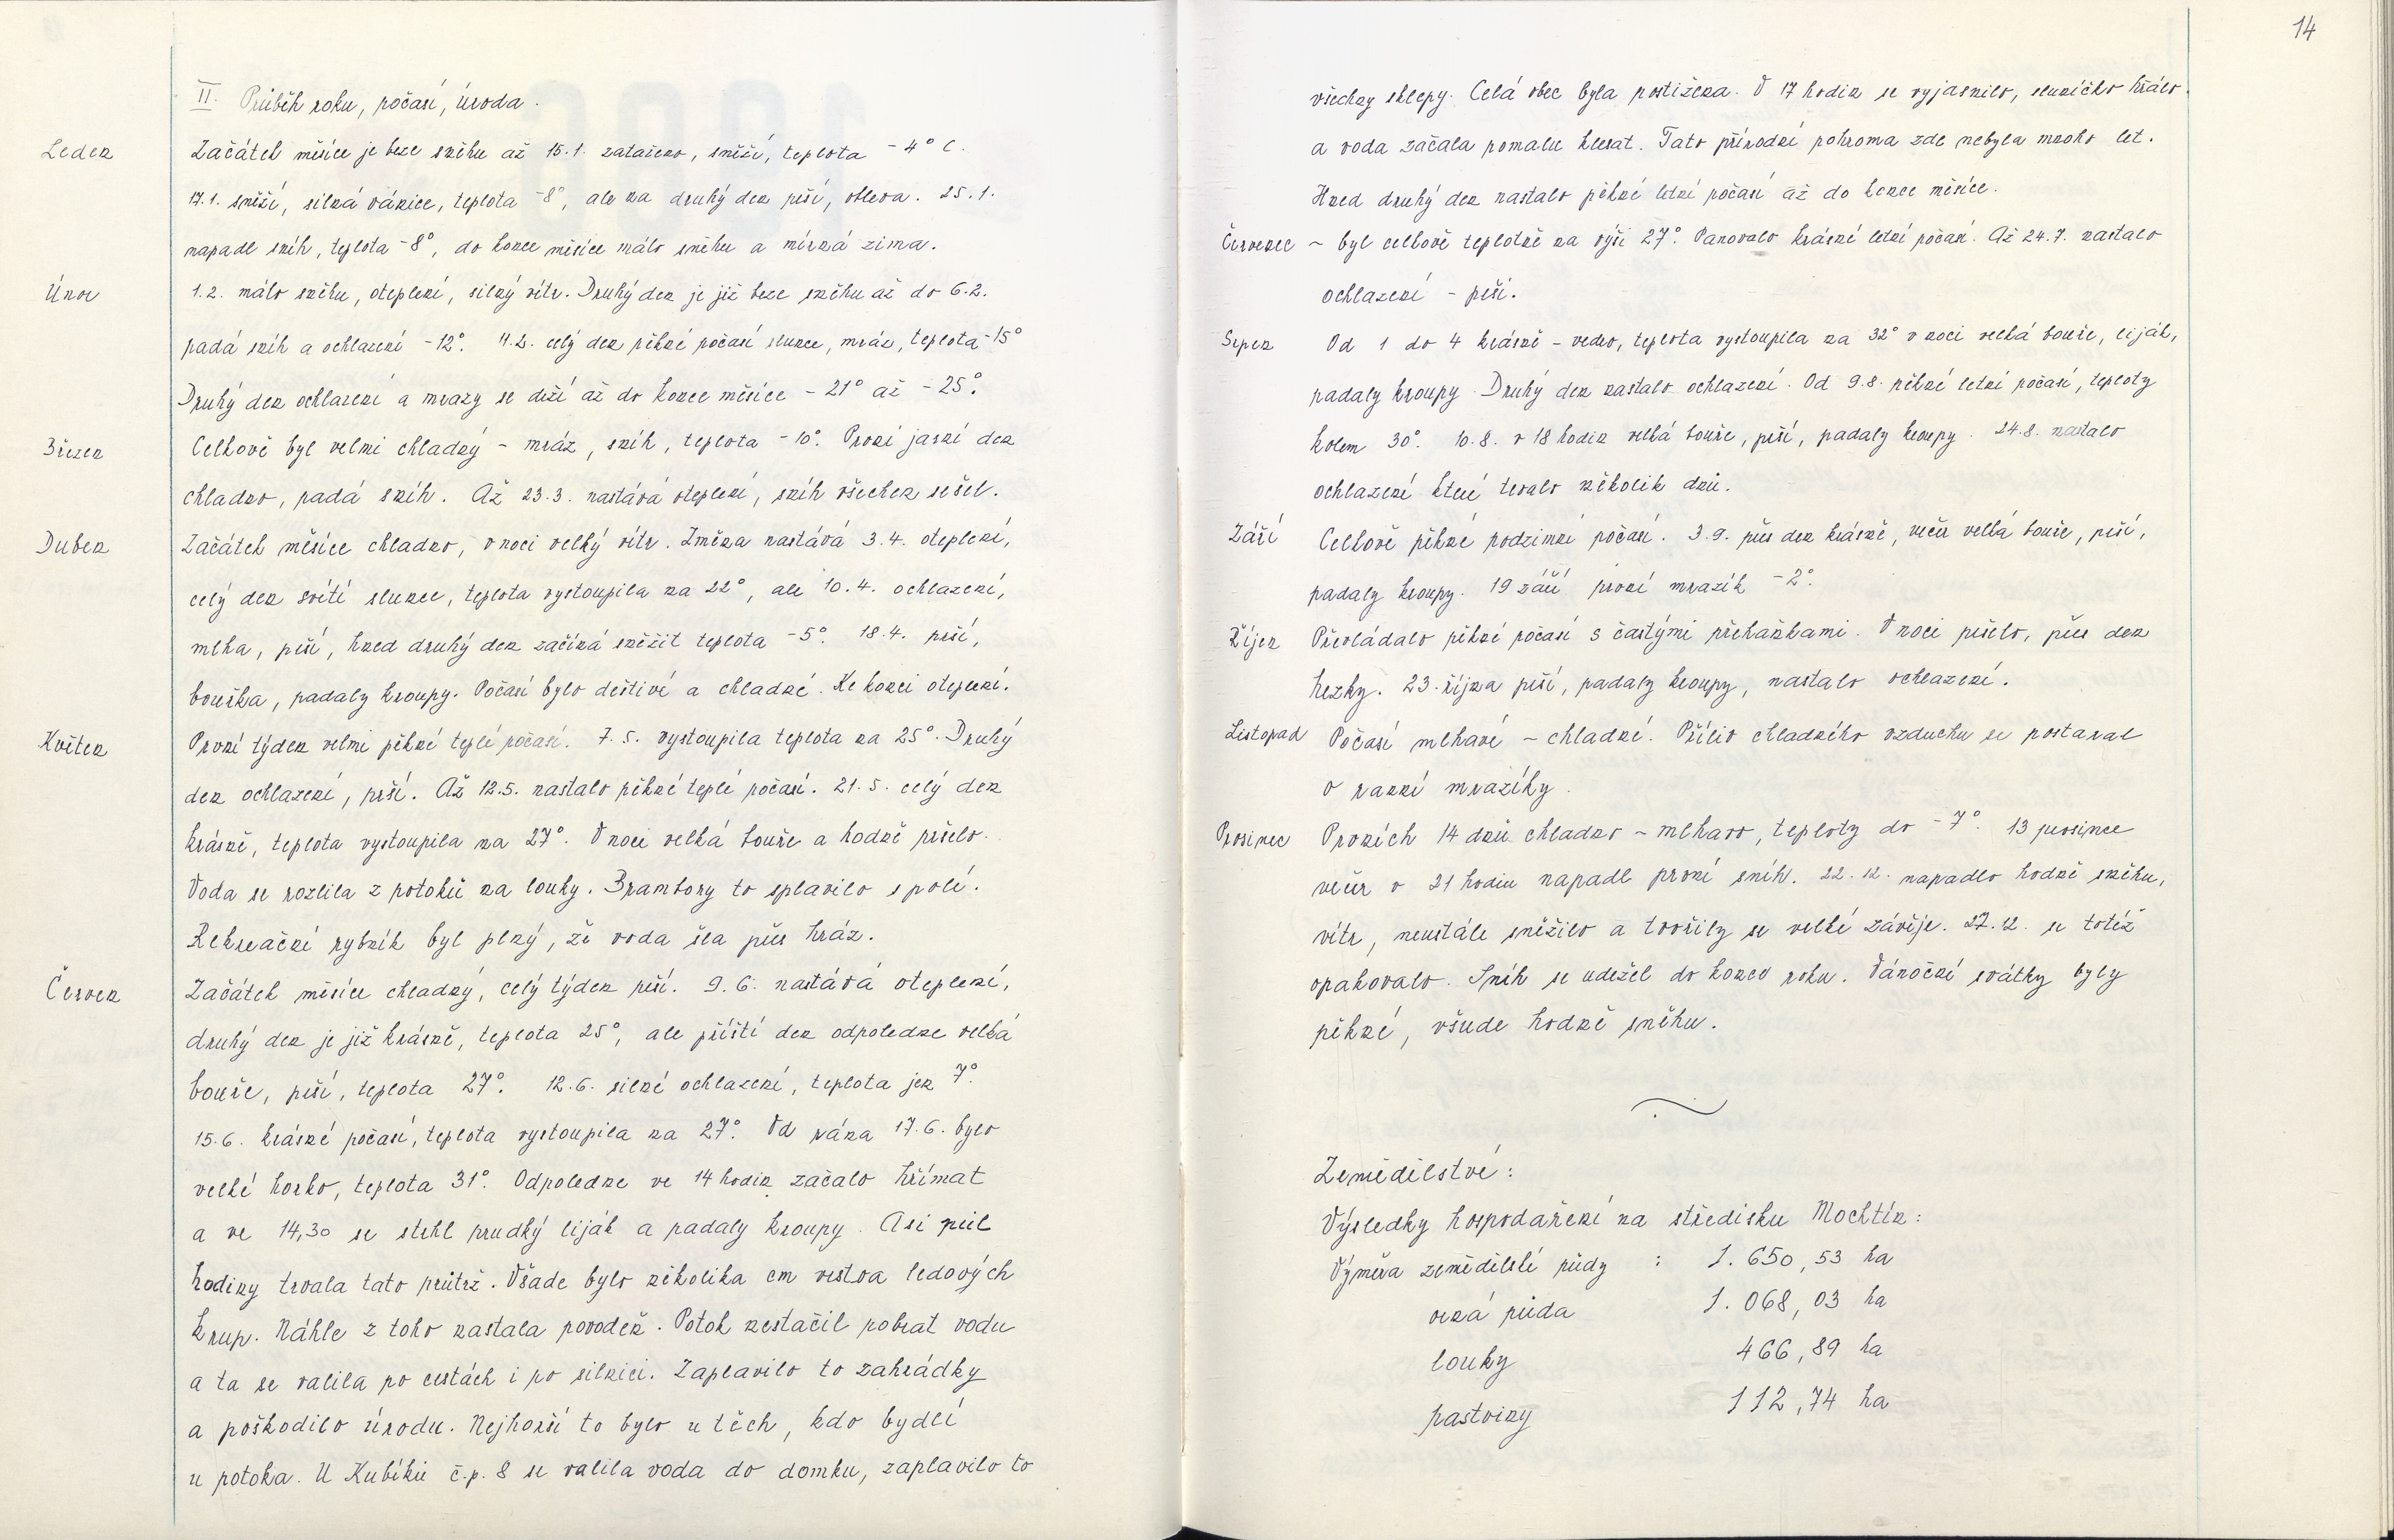 14
II. Průběh roku, počasí, úroda.
Leden Začátek měsíce je beze sněhu až 15.1. zataženo, sněží, teplota -4° C.
17.1. sněží, silná vánice, teplota -8°, ale na druhý den prší, obleva. 25.1.
napadl sníh, teplota -8°, do konce měsíce málo sněhu a mírná zima.
Únor 1.2. málo sněhu, oteplení, silný vítr. Druhý den je již beze sněhu až do 6.2.
padá sníh a ochlazení -12°. celý den pěkné počasí slunce, mráz, teplota -15°
Druhý den ochlazení a mrazy se drží až do konce měsíce -21° až -25°.
Březen Celkově byl velmi chladný - mráz, sníh, teplota -10°. První jarní den
chladno, padá sníh. Až 23.3. nastává oteplení, sníh všechen sešel.
Duben Začátek měsíce chladno, v noci velký vítr. Změna nastává 3.4. oteplení,
celý den svítí slunce, teplota vystoupila na 22°, ale 10.4. ochlazení,
mlha, prší, hned druhý den začíná sněžit teplota -5°. 18.4. prší,
bouřka, padaly kroupy. Počasí bylo deštivé a chladné. Ke konci oteplení.
Květen První týden velmi pěkné teplé počasí. 7.5. vystoupila teplota na 25°. Druhý
den ochlazení, prší. Až 12.5. nastalo pěkné teplé počasí. 21.5. celý den
krásně, teplota vystoupila na 27°. V noci velká bouře a hodně pršelo.
Voda se rozlila z potoků na louky. Brambory to splavilo s polí.
Rekreační rybník byl plný, že voda šla přes hráz.
Červen Začátek měsíce chladný, celý týden prší. 9.6. nastává oteplení,
druhý den je již krásně, teplota 25°, ale příští den odpoledne velká
bouře, prší, teplota 27°. 12.6. silné ochlazení, teplota jen 7°.
15.6. krásné počasí, teplota vystoupila na 27°. Od rána 17.6. bylo
velké horko, teplota 31°. Odpoledne ve 14 hodin začalo hřímat
a ve 14,30 se strhl prudký liják a padaly kroupy. Asi půl
hodiny trvala tato průtrž. Všade bylo několika cm vrstva ledových
krup. Náhle z toho nastala povodeň. Potok nestačil pobrat vodu
a ta se valila po cestách i po silnici. Zaplavilo to zahrádky
a poškodilo úrodu. Nejhorší to bylo u těch, kdo bydlí
u potoka. U Kubíků č.p. 8 se valila voda do domku, zaplavilo to
všechny sklepy. Celá obec byla postižena. V 17 hodin se vyjasnilo, sluníčko hřálo.
a voda začala pomalu klesat. Tato přírodní pohroma zde nebyla mnoho let.
Hned druhý den nastalo pěkné letní počasí až do konce měsíce.
Červenec - byl celkově teplotně na výši 27°. Panovalo krásné letní počasí. Až 24.7. nastalo
ochlazení - prší.
Srpen Od 1 do 4 krásně - vedro, teplota vystoupila na 32° v noci velká bouře, liják,
padaly kroupy. Druhý den nastalo ochlazení. Od 9.8. pěkné letní počasí, teploty
kolem 30°. 10.8. v 18 hodin velká bouře, prší, padaly kroupy. 24.8. nastalo
ochlazení které trvalo několik dnů.
Září Celkově pěkné podzimní počasí. 3.9. přes den krásně, večer velká bouře, prší,
padaly kroupy. 19 září první mrazík -2°.
Říjen Převládalo pěkné počasí s častými přeháňkami. V noci pršelo, přes den
hezky. 23. října prší, padaly kroupy, nastalo ochlazení.
Listopad Počasí mlhavé - chladné. Příliv chladného vzduchu se postaral
o ranní mrazíky.
Prosinec Prvních 14 dnů chladno - mlhavo, teploty do -7°. 13 prosince
večer v 21 hodin napadl první sníh. 22.12. napadlo hodně sněhu,
vítr, neustále sněžilo a tvořily se velké závěje. 27.12. se totéž
opakovalo. Sníh se udržel do konce roku. Vánoční svátky byly
pěkné, všude hodně sněhu.
Zemědělství:
Výsledky hospodaření na středisku Mochtín:
Výměra zemědělské půdy : 1.650,53 ha
orná půda 1.068,03 ha
louky 466,89 ha
pastviny 112,74 ha